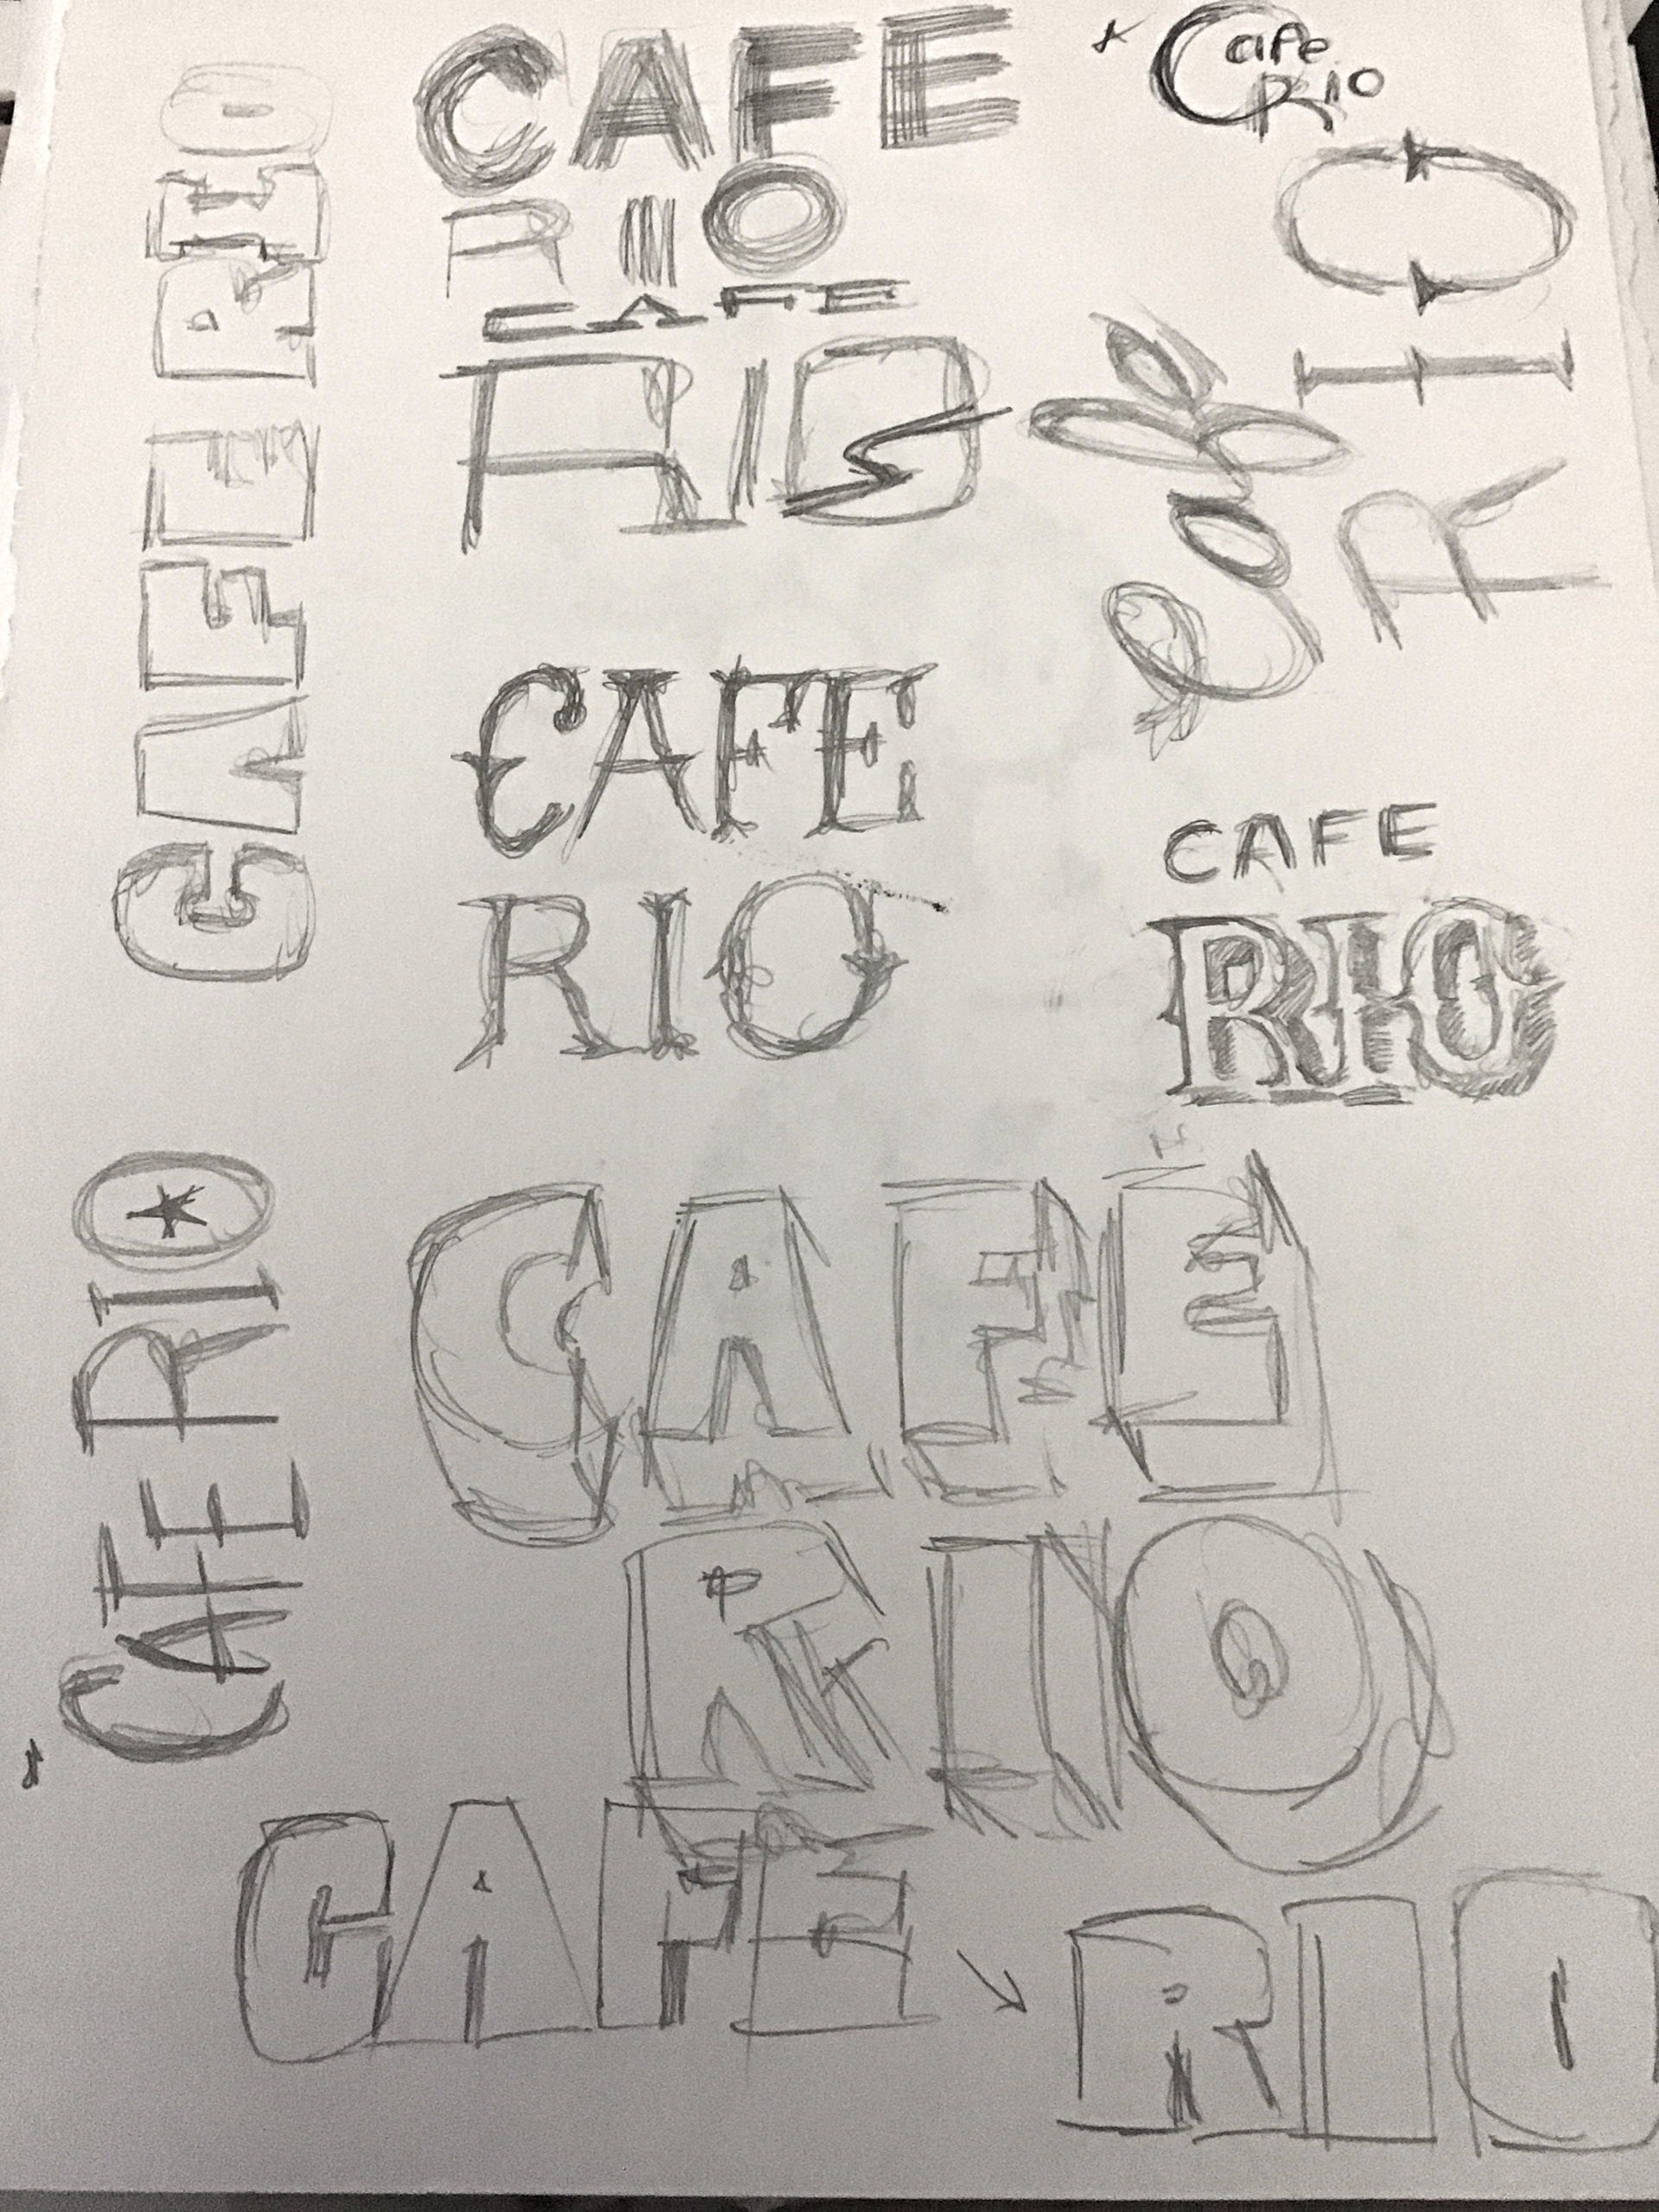 CAFE
RIO
Cafe
Rio
CAFE
RIO
Cafe
RIO
CAFE RIO
CAFE
RIO
CAFE
RIO
CAFE RIO
CAFE
RIO
CAFE
RIO